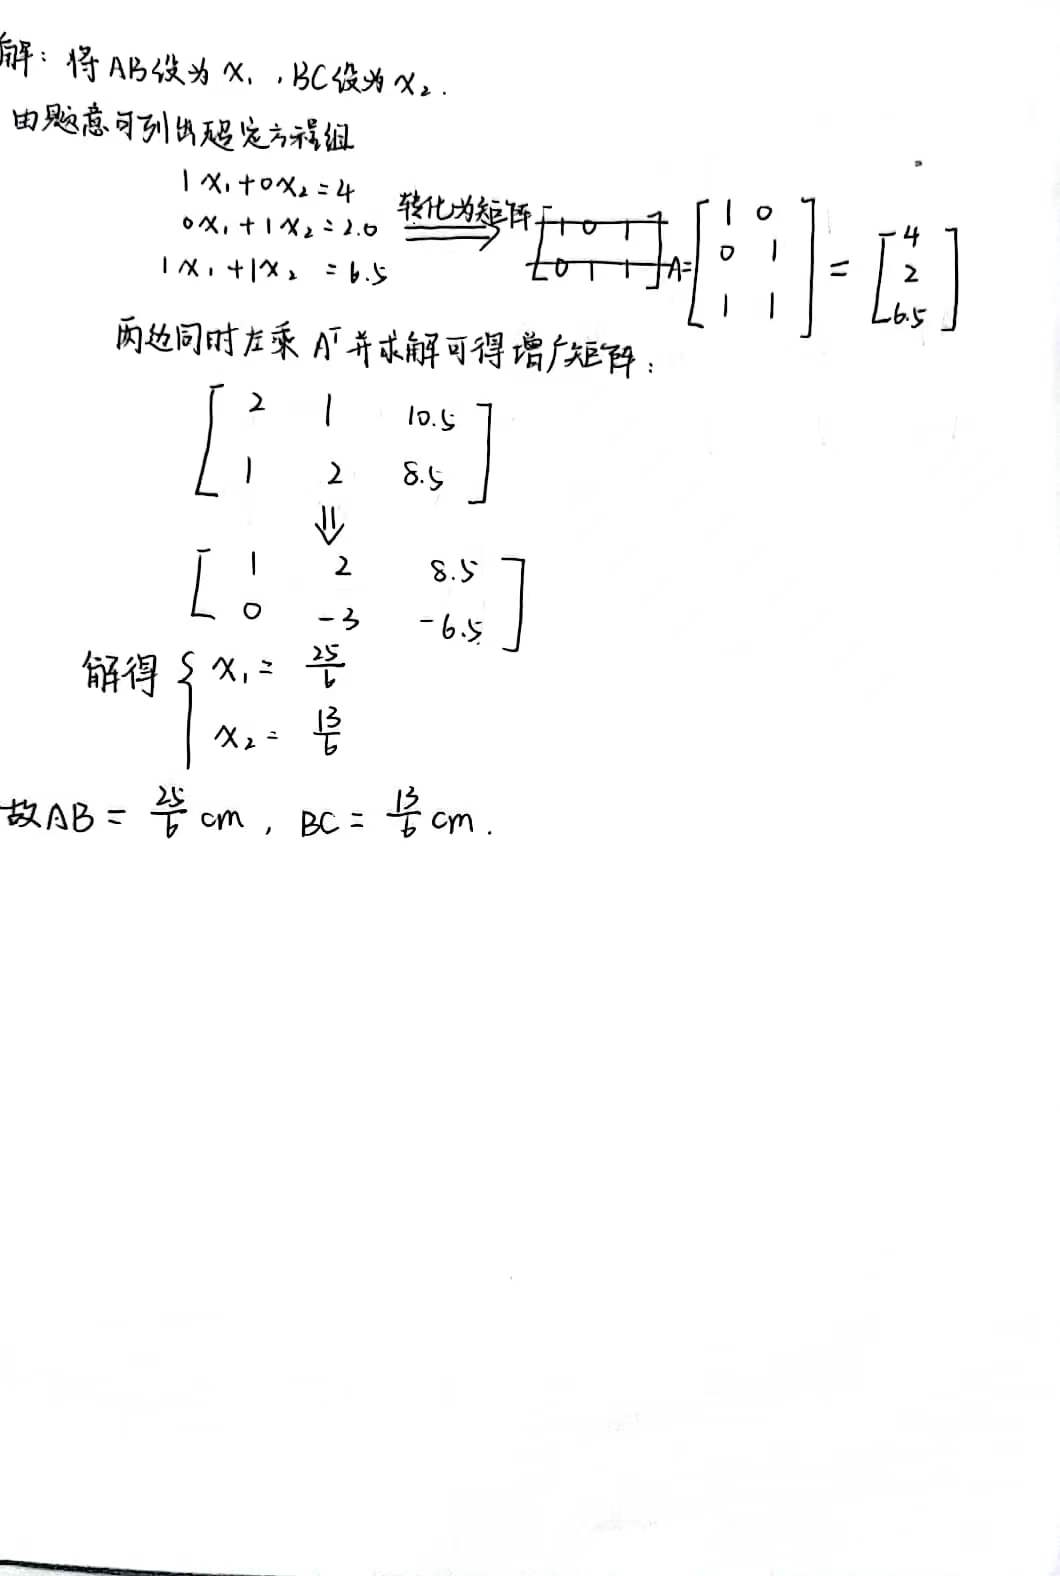 解：将AB设为x₁，BC设为x₂.
由题意可列出超定方程组
1x₁+0x₂=4
0x₁+1x₂=2.0
1x₁+1x₂=6.5
转化为矩阵
1 0 1
0 1 1
A=[1 0
0 1
1 1] = [4
2
6.5]
两边同时左乘Aᵀ并求解可得增广矩阵：
[2 1 10.5
1 2 8.5]
⇓
[1 2 8.5
0 -3 -6.5]
解得 { x₁= 25/6
x₂= 13/6
故AB= 25/6 cm, BC= 13/6 cm.